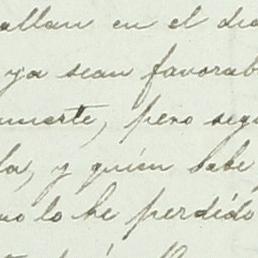 allan en el dia
ya sean favorab
muerte, pero segu
la, y quien sabe
no lo he perdido